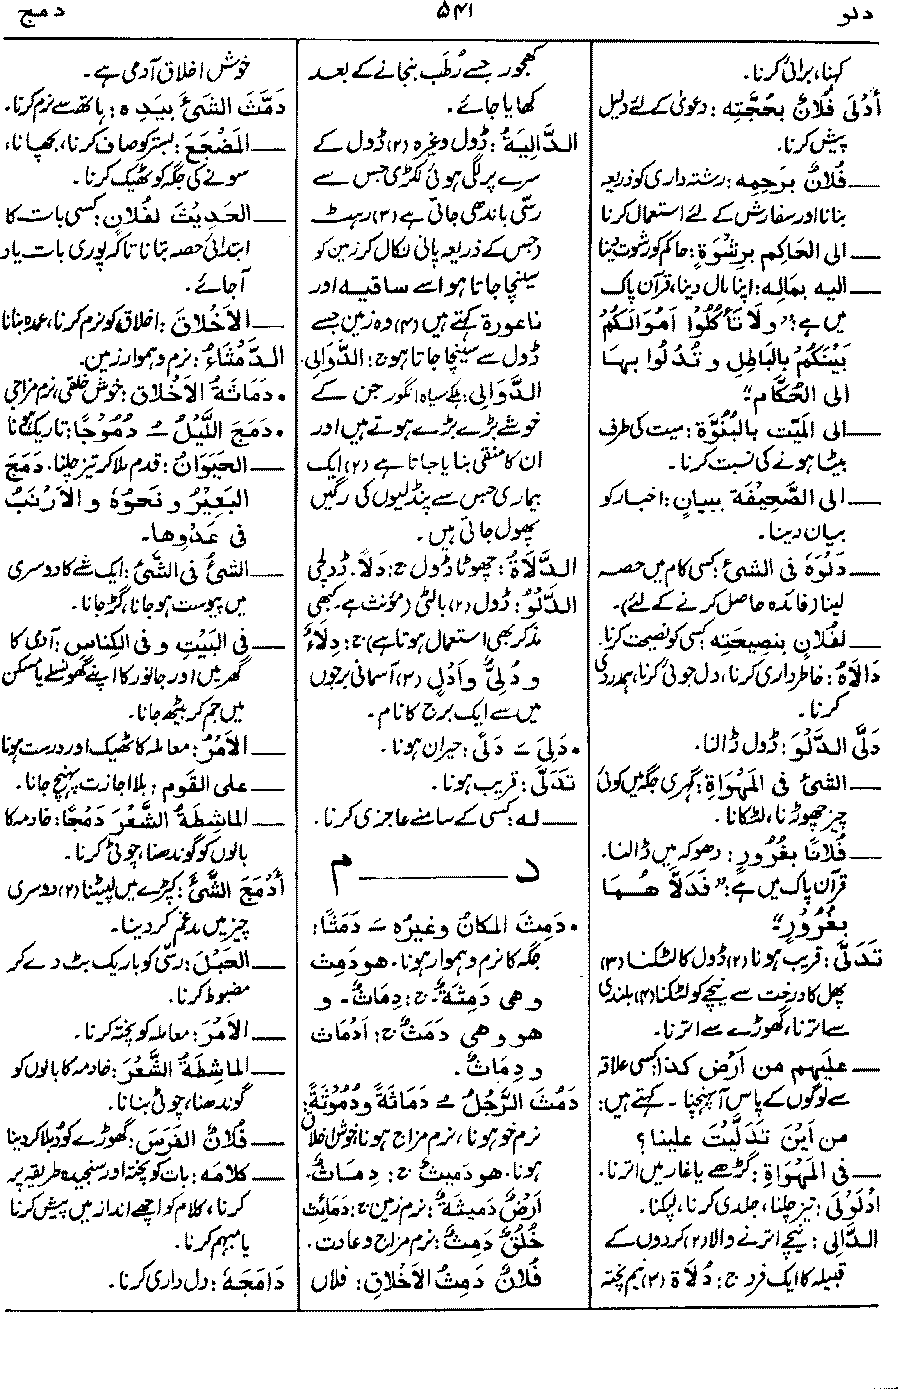 دلو
۵۴۱
دمج
کہنا، برائی کرنا۔
أَدْلَىٰ فُلَانٌ بِحُجَّتِه : دعویٰ کے لئے دلیل
پیش کرنا۔
— فُلَانٌ بِرَحِمِه : رشتہ داری کو ذریعہ
بنانا اور سفارش کے لئے استعمال کرنا
— الی الحَاکِمِ بِرِشْوَةٍ : حاکم کو رشوت دینا
— الیه بِمَالِه : اپنا مال دینا، قرآن پاک
میں ہے: ”وَلَا تَأْكُلُوا أَمْوَالَكُمْ
بَيْنَكُمْ بِالْبَاطِلِ وَ تُدْلُوا بِهَا
الی الحُكَّامِ“
— الی المَیِّتِ بِالبُنُوَّةِ : میت کی طرف
بیٹا ہونے کی نسبت کرنا۔
— الی الصَّحِیْفَةِ بِبَیَانٍ : اخبار کو
بیان دینا۔
— دَلْوَهُ فی الشیءِ : کسی کام میں حصہ
لینا (فائدہ حاصل کرنے کے لئے)۔
— لِفُلَانٍ بِنَصِیحَتِه کسی کو نصیحت کرنا۔
دَالَاهُ : خاطر داری کرنا، دل جوئی کرنا، ہمدردی
کرنا۔
دَلَّی الدَّلْوَ : ڈول ڈالنا۔
— الشیءَ فی المَهْوَاةِ : گہری جگہ میں کوئی
چیز چھوڑنا، لٹکانا۔
— فُلَانًا بِغُرُوْرٍ : دھوکہ میں ڈالنا۔
قرآن پاک میں ہے: ”فَدَلَّاهُمَا
بِغُرُوْرٍ“
تَدَلّٰی : قریب ہونا (۲) ڈول کا لٹکنا (۳)
پھل کا درخت سے نیچے کو لٹکنا (۴) بلندی
سے اترنا، گھوڑے سے اترنا۔
— علیهم من أرْضِ کذا : کسی علاقہ
سے لوگوں کے پاس آ پہنچنا۔ کہتے ہیں:
من أیْنَ تَدَلَّیْتَ علینا؟
— فی المَهْوَاةِ : گڑھے یا غار میں اترنا۔
ادْلَوْلٰی : تیز چلنا، جلدی کرنا، لپکنا۔
الدَّالِی : نیچے اترنے والا (۲) کردوں کے
قبیلہ کا ایک فرد ج: دُلَاة (۳) نیم پختہ
کھجور جسے رُطَب بنجانے کے بعد
کھایا جائے۔
الدَّالِیَةُ : ڈول وغیرہ (۲) ڈول کے
سرے پر لگی ہوئی لکڑی جس سے
رسّی باندھی جاتی ہے (۳) رہٹ
(جس کے ذریعہ پانی نکال کر زمین کو
سینچا جاتا ہو اسے ساقیه اور
ناعورة کہتے ہیں (۴) وہ زمین جسے
ڈول سے سینچا جاتا ہو ج: الدَّوَالِی۔
الدَّوَالِی : ہلکے سیاہ انگور جن کے
خوشے بڑے بڑے ہوتے ہیں اور
ان کا منقی بنایا جاتا ہے (۲) ایک
بیماری جس سے پنڈلیوں کی رگیں
پھول جاتی ہیں۔
الدَّلَاةُ : چھوٹا ڈول ج: دَلًا۔ ڈولچی
الدَّلْوُ : ڈول (۲) بالٹی (مؤنث ہے۔ کبھی
مذکر بھی استعمال ہوتا ہے) ج: دِلَاءٌ
و دُلِیٌّ وأَدْلٍ (۲) آسمانی برجوں
میں سے ایک برج کا نام۔
• دَلِیَ — دَلًی : حیران ہونا۔
تَدَلّٰی : قریب ہونا۔
— له : کسی کے سامنے عاجزی کرنا۔
د ——— م
• دَمِثَ المَکَانُ وغیرُه — دَمَثًا :
جگہ کا نرم و ہموار ہونا۔ هو دَمِث
و هی دَمِثَةٌ۔ ج: دِمَاثٌ۔ و
هو و هی دَمْثٌ ج: أَدْمَاث
و دِمَاثٌ۔
دَمُثَ الرَّجُلُ — دَمَاثَةً ودُمُوْثَةً :
نرم خو ہونا، نرم مزاج ہونا، خوش اخلاق
ہونا۔ هو دَمِیْثٌ ج: دِمَاث۔
أَرْضٌ دَمِیْثَةٌ : نرم زمین ج: دَمَائِث
خُلُقٌ دَمِثٌ : نرم مزاج و عادت۔
فُلَانٌ دَمِثُ الأَخْلَاقِ : فلاں
خوش اخلاق آدمی ہے۔
دَمَّثَ الشیءَ بِیَدِه : ہاتھ سے نرم کرنا۔
— المَضْجَعَ : بستر کو صاف کرنا، بچھانا،
سونے کی جگہ کو ٹھیک کرنا۔
— الحَدِیْثَ لِفُلَانٍ : کسی بات کا
ابتدائی حصہ بتانا تاکہ پوری بات یاد
آ جائے۔
— الأَخْلَاقَ : اخلاق کو نرم کرنا، عمدہ بنانا
الدَّمْثَاءُ : نرم و ہموار زمین۔
• دَمَاثَةُ الأَخْلَاقِ : خوش خلقی، نرم مزاجی
• دَمَجَ اللَّیْلُ — دُمُوْجًا : تاریکی چھانا
— الحَیَوَانُ : قدم ملا کر تیز چلنا۔ دَمَجَ
البَعِیْرُ و نَحْوُهُ و الأَرْنَبُ
فی عَدْوِها۔
— الشیءُ فی الشَّیءِ : ایک شے کا دوسری
میں پیوست ہو جانا، گڑ جانا۔
— فی البَیْتِ و فی الکِنَاسِ : آدمی کا
گھر میں اور جانور کا اپنے گھونسلے یا مسکن
میں جم کر بیٹھ جانا۔
— الأَمْرُ : معاملہ کا ٹھیک اور درست ہونا
— علی القَوْمِ : بلا اجازت پہنچ جانا۔
— المَاشِطَةُ الشَّعْرَ دَمْجًا : خادمہ کا
بالوں کو گوندھنا، چوٹی کرنا۔
أَدْمَجَ الشَّیءَ : کپڑے میں لپیٹنا (۲) دوسری
چیز میں مدغم کر دینا۔
— الحَبْلَ : رسّی کو باریک بٹ دے کر
مضبوط کرنا۔
— الأَمْرَ : معاملہ کو پختہ کرنا۔
— المَاشِطَةُ الشَّعْرَ : خادمہ کا بالوں کو
گوندھنا، چوٹی بنانا۔
— فُلَانٌ الفَرَسَ : گھوڑے کو دبلا کر دینا
— کلامَه : بات کو پختہ اور سنجیدہ طریقہ پر
کرنا، کلام کو اچھے انداز میں پیش کرنا
یا مبہم کرنا۔
دَامَجَهُ : دل داری کرنا۔